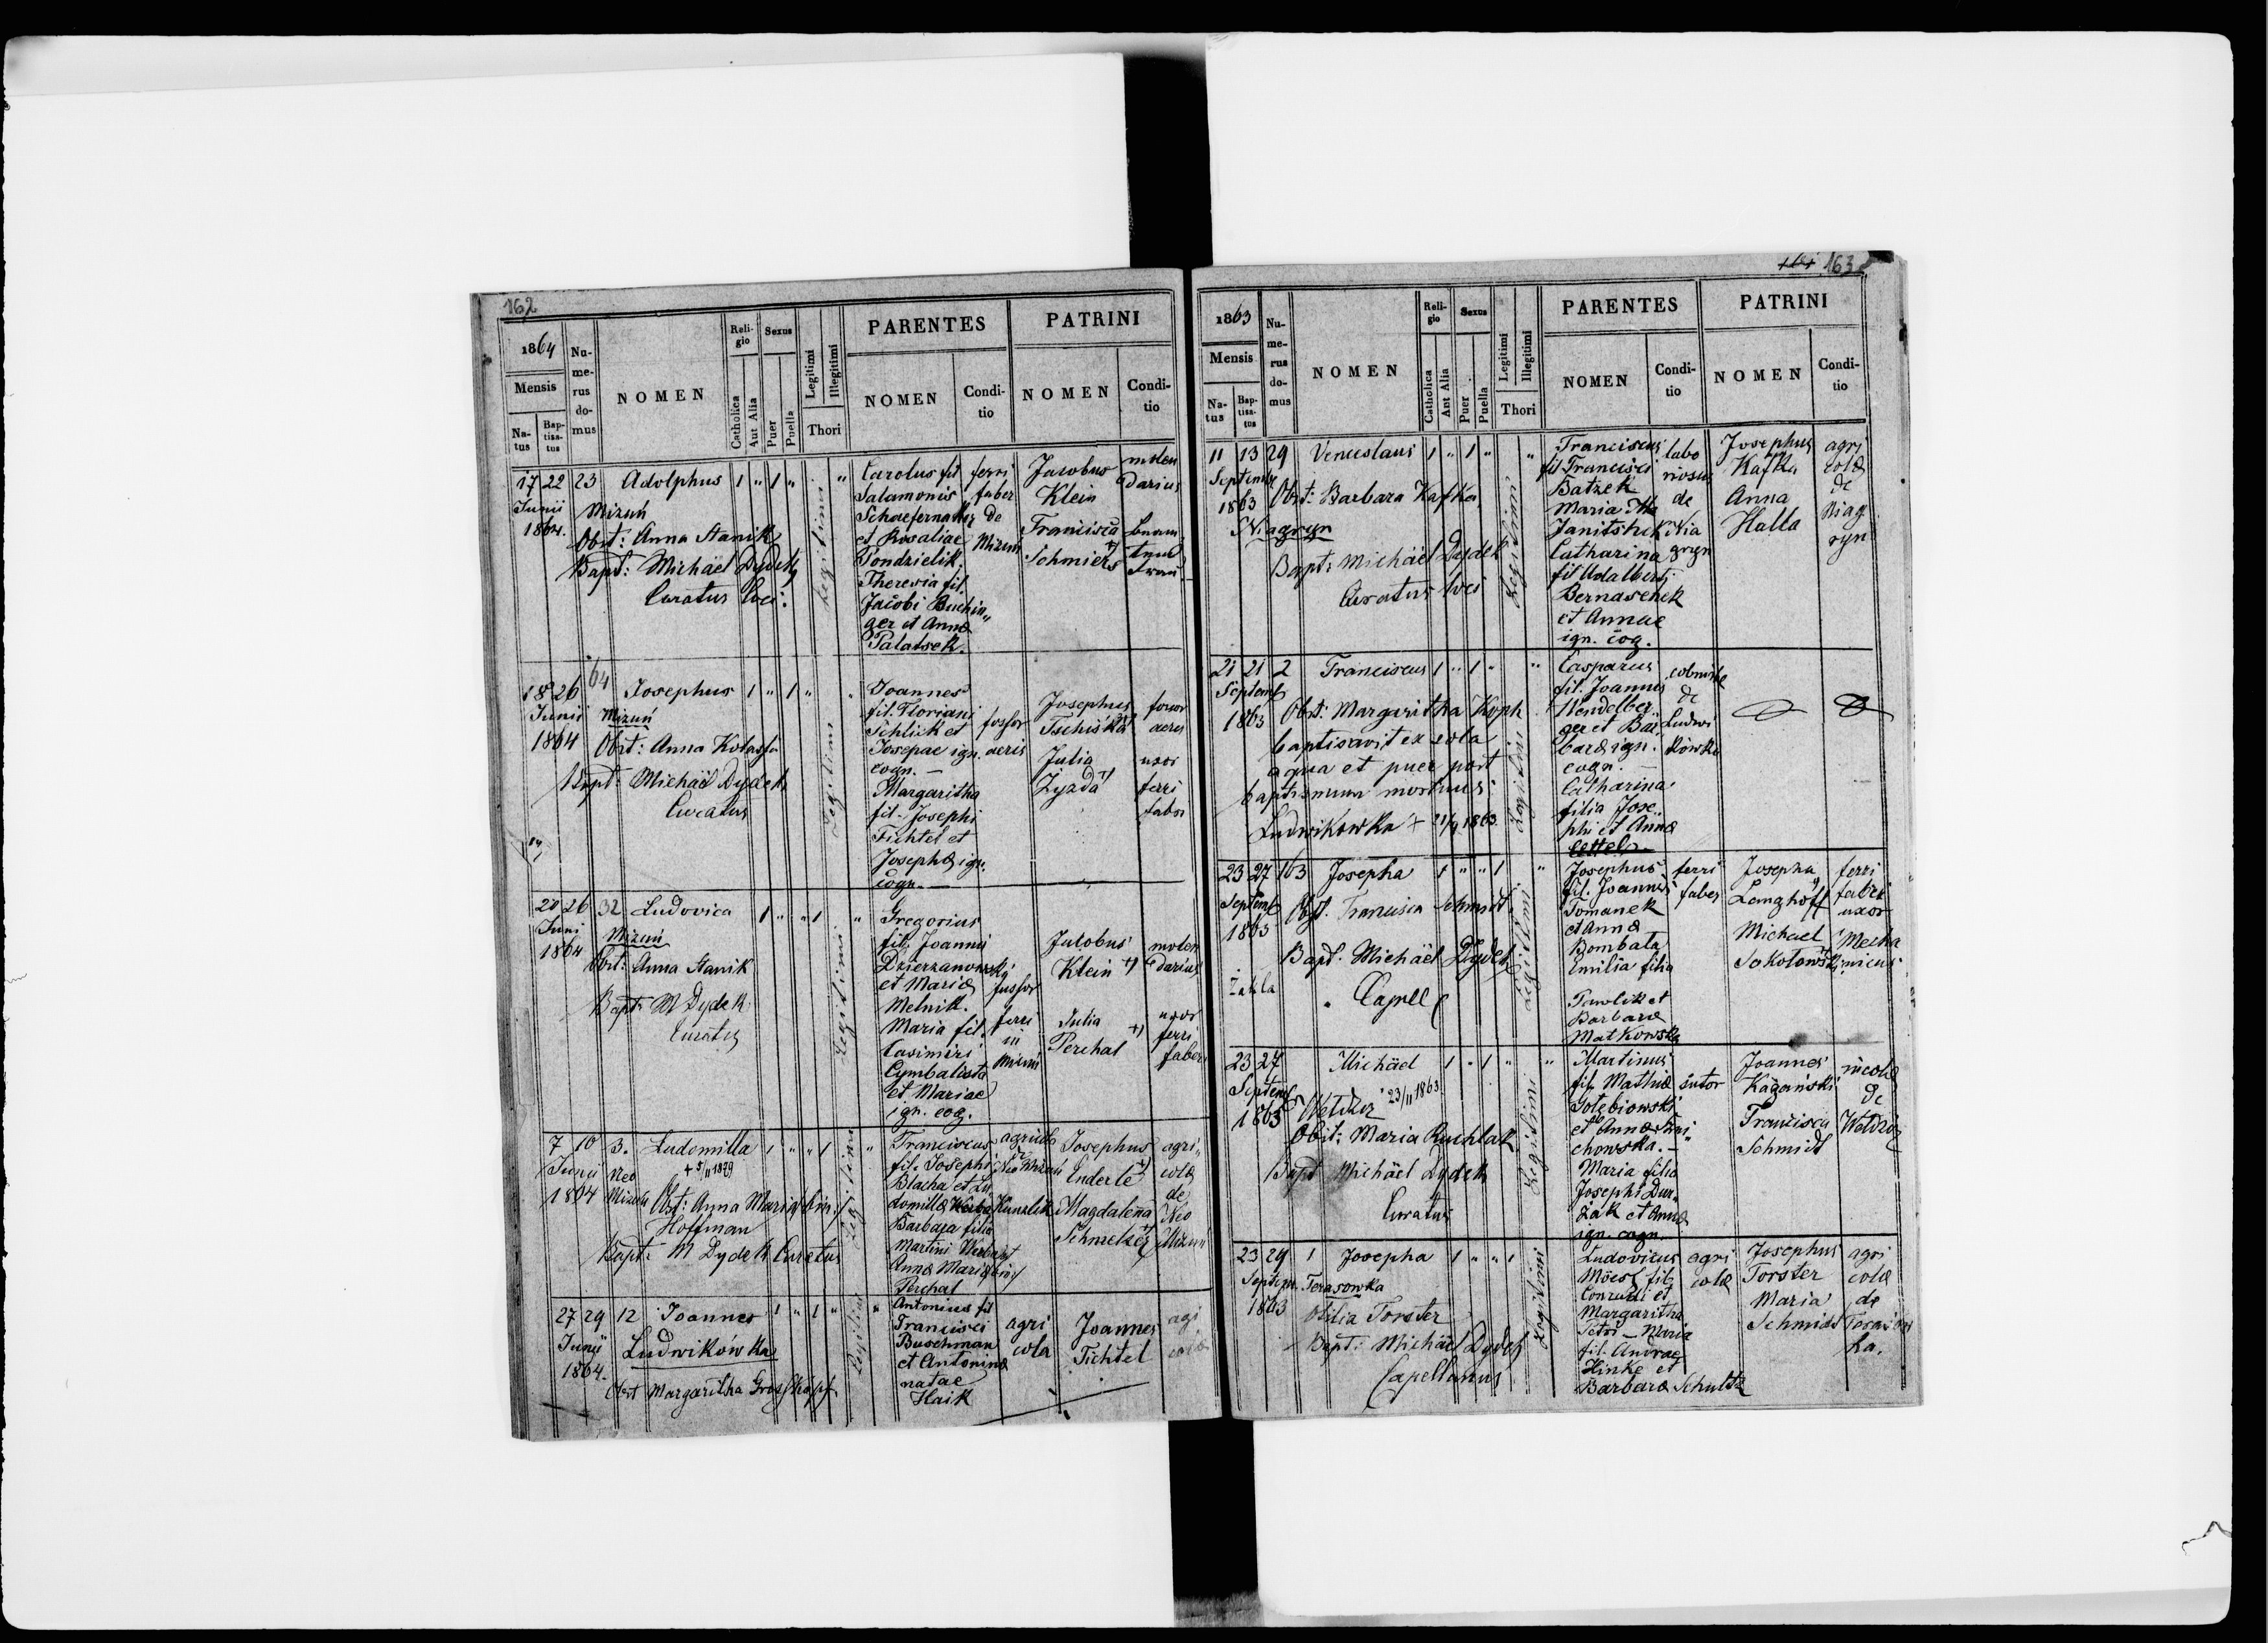 162
1864
Mensis
Na-
tus
Bap-
tisa-
tus
Nu-
me-
rus
do-
mus
NOMEN
Reli-
gio
Catholica
Aut Alia
Sexus
Puer
Puella
Legitimi
Illegitimi
Thori
PARENTES
NOMEN
Condi-
tio
PATRINI
NOMEN
Condi-
tio
17 22 23 Adolphus 1 " 1 " "
Junii Mizuń
1864.
Obst: Anna Stanik
Bapt: Michäel Dydek
Curatus loci.
Legitimi
Carolus fil
Salamonis
et Rosaliae
Pondzielik.
Theresia fil.
Jacobi Buchin"
ger et Annae
Palatsek.
ferri
faber
de
Mizuń
Jacobus
Klein
Francisca
Schmiers
molen
darius
18 26 64 Josephus 1 " 1 " "
Junii Mizuń
1864 Obst: Anna Kolassa
Bapt: Michäel Dydek
Curatus
Legitimi
Joannes
fil. Floriani
Schlick et
Josepae ign.
cogn. —
Margaritha
fil. Josephi
Fichtel et
Josephae ign.
cogn. —
fossor
aeris
Josephus
Tschiska
Julia
Zyzda
fossor
aeris
uxor
ferri
fabri
20 26 32 Ludovica 1 " " 1 "
Juni Mizuń
1864 Obst: Anna Stanik
Bapt: M Dydek
Curatus
Legitimi
Gregorius
fil. Joannis
Dzierzanowski
et Mariae
Melnik.
Maria fil.
Casimiri
Cymbalista
et Mariae
ign. cog.
fossor
ferri
in
Mizuń
Jacobus
Klein +)
Julia
Perchal +)
molen
darius
uxor
ferri
fabri
7 10 3. Ludomilla 1 " " 1 "
Junii Neo + 5/11 1879
1864 Mizuń Obst: Anna Maria bin:
Hoffman
Bapt: M Dydek Curatus
Legitimi
Franciscus
fil. Josephi
Blacha et Lu
domillae Kunzlik
Barbara filia
Martini
Annae Mariae bin:
Perchal
agricola
Neo Mizuń
Josephus
Enderle
Magdalena
Schmelzer
agri-
colae
de
Neo
Mizuń
27 29 12 Joannes 1 " 1 " "
Junii Ludwikówka
1864.
Obst Margaritha Grosskopf
Legitimi
Antonius fil
Francisci
Buschman
et Antoninae
natae
Haik
agri
cola
Joannes
Fichtel
agri
colae
163
1863
Mensis
Na-
tus
Bap-
tisa-
tus
Nu-
me-
rus
do-
mus
NOMEN
Reli-
gio
Catholica
Aut Alia
Sexus
Puer
Puella
Legitimi
Illegitimi
Thori
PARENTES
NOMEN
Condi-
tio
PATRINI
NOMEN
Condi-
tio
11 13 29 Venceslaus 1 " 1 " "
Septembr
1863 Obst: Barbara Kafka
Niagryn
Bapt: Michäel Dydek
Curatus loci
Legitimi
Franciscus
fil Francisci
Batzek
Janitshek
Catharina
fil Adalberti
Bernaschek
et Annae
ign. cog.
labo
riosus
de
Nia
gryn
Josephus
Kafka
Anna
Halla
agri
colae
de
Niag
ryn
21 21 2 Franciscus 1 " 1 " "
Septemb
1863 Obst: Margaritha Koph
baptisavit ex sola
aqua et puer post
baptismum mortuus
Ludwikowka + 21/9 1863
Legitimi
Casparus
fil. Joannis
Wendelber
ger et Bar
barae ign.
cogn. —
Catharina
filia Jose
phi et Annae
Cettel
de
Ludwi
kówka
23 27 163 Josepha 1 " " 1 "
Septemb
1863 Obst. Francisca Schmidt
Bapt. Michäel Dydek
Zakla Capell
Legitimi
Josephus
fil. Joannis
Tomanek
et Annae
Bombala
Emilia filia
Pawlik et
Barbarae
Matkowska
ferri
faber
Josepha
Langhoff
Michael
Sokołowski
ferri
fabri
uxor
Mecha
nicus
23 27 Michäel 1 " 1 " "
Septemb
1863 Wełdzirz 23/11 1863
Obst: Maria Ruchlak
Bapt Michäel Dydek
Curatus
Legitimi
Martinus
fil. Mathiae
Gołębiowski
chowska. —
Maria filia
Josephi Dur
żak et Annae
ign. cogn.
sutor
Joannes
Kagański
Francisca
Schmidt
incolae
de
Wełdzirz
23 29 1 Josepha 1 " " 1
Septem. Terasowka
1863 Otilia Forster
Bapt: Michäel Dydek
Capellanus
Legitimi
Ludovicus
Möest fil.
Conradi et
Margaritha
Petri — Maria
fil. Andreae
Hinke et
Barbarae Schultz
agri
colae
Josephus
Forster
Maria
Schmidt
agri
colae
de
ka.